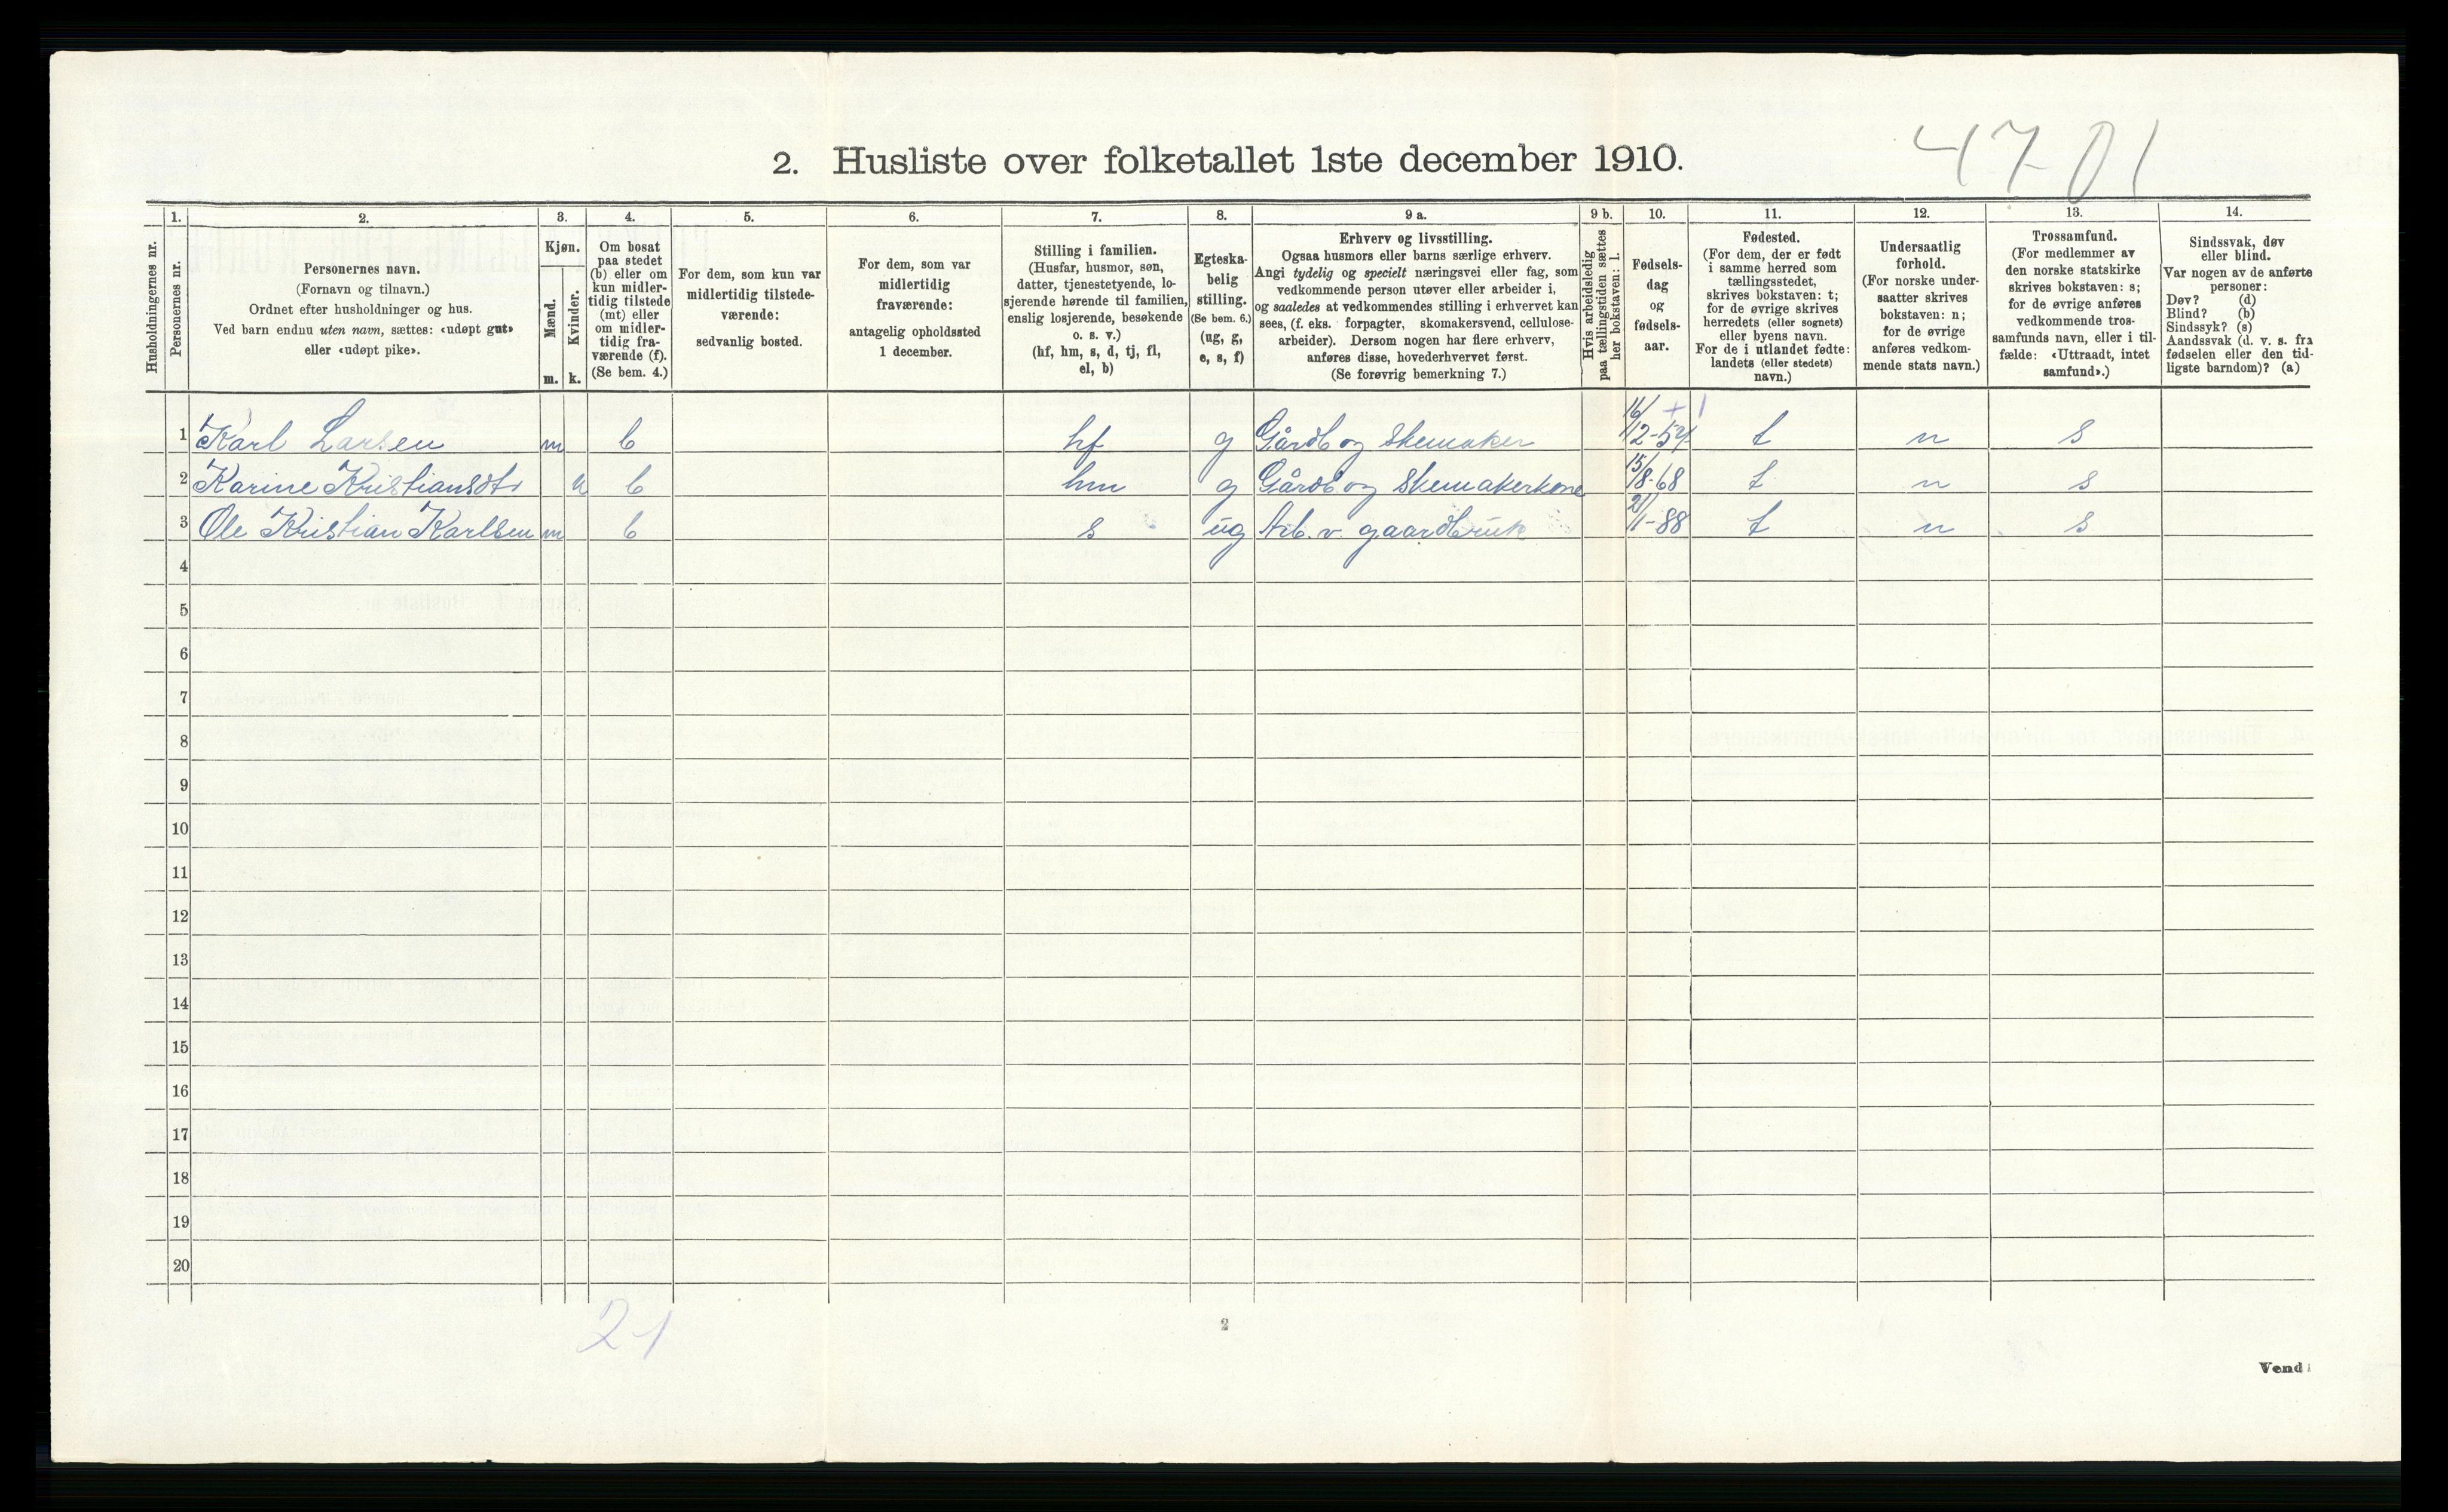 47-01
2. Husliste over folketallet 1ste december 1910.
Husholdningernes nr.
1.
Personernes nr.
2.
Personernes navn.
(Fornavn og tilnavn.)
Ordnet efter husholdninger og hus.
Ved barn endnu uten navn, sættes: «udøpt gut»
eller «udøpt pike».
3.
Kjøn.
Mænd.
Kvinder.
m. k.
4.
Om bosat
paa stedet
(b) eller om
kun midler-
tidig tilstede
(mt) eller
om midler-
tidig fra-
værende (f).
(Se bem. 4.)
5.
For dem, som kun var
midlertidig tilstede-
værende:
sedvanlig bosted.
6.
For dem, som var
midlertidig
fraværende:
antagelig opholdssted
1 december.
7.
Stilling i familien.
(Husfar, husmor, søn,
datter, tjenestetyende, lo-
sjerende hørende til familien,
enslig losjerende, besøkende
o. s. v.)
(hf, hm, s, d, tj, fl,
el, b)
8.
Egteska-
belig
stilling.
(Se bem. 6.)
(ug, g,
e, s, f)
9 a.
Erhverv og livsstilling.
Ogsaa husmors eller barns særlige erhverv.
Angi tydelig og specielt næringsvei eller fag, som
vedkommende person utøver eller arbeider i,
og saaledes at vedkommendes stilling i erhvervet kan
sees, (f. eks. forpagter, skomakersvend, cellulose-
arbeider). Dersom nogen har flere erhverv,
anføres disse, hovederhvervet først.
(Se forøvrig bemerkning 7.)
9 b.
Hvis arbeidsledig
paa tællingstiden sættes
her bokstaven: l.
10.
Fødsels-
dag
og
fødsels-
aar.
11.
Fødested.
(For dem, der er født
i samme herred som
tællingsstedet,
skrives bokstaven: t;
for de øvrige skrives
herredets (eller sognets)
eller byens navn.
For de i utlandet fødte:
landets (eller stedets)
navn.)
12.
Undersaatlig
forhold.
(For norske under-
saatter skrives
bokstaven: n;
for de øvrige
anføres vedkom-
mende stats navn.)
13.
Trossamfund.
(For medlemmer av
den norske statskirke
skrives bokstaven: s;
for de øvrige anføres
vedkommende tros-
samfunds navn, eller i til-
fælde: «Uttraadt, intet
samfund».)
14.
Sindssvak, døv
eller blind.
Var nogen av de anførte
personer:
Døv? (d)
Blind? (b)
Sindssyk? (s)
Aandssvak (d. v. s. fra
fødselen eller den tid-
ligste barndom)? (a)
1 Karl Larsen m b hf g Gårdb og Skomaker 16/12-54 t n s
2 Karine Kristiansdt. k b hm g Gårdb og Skomakerkone 15/8-68 t n s
3 Ole Kristian Karlsen m b s ug Arb. v. gaardbruk 21/1-88 t n s
4
5
6
7
8
9
10
11
12
13
14
15
16
17
18
19
20
2-1
2
Vend